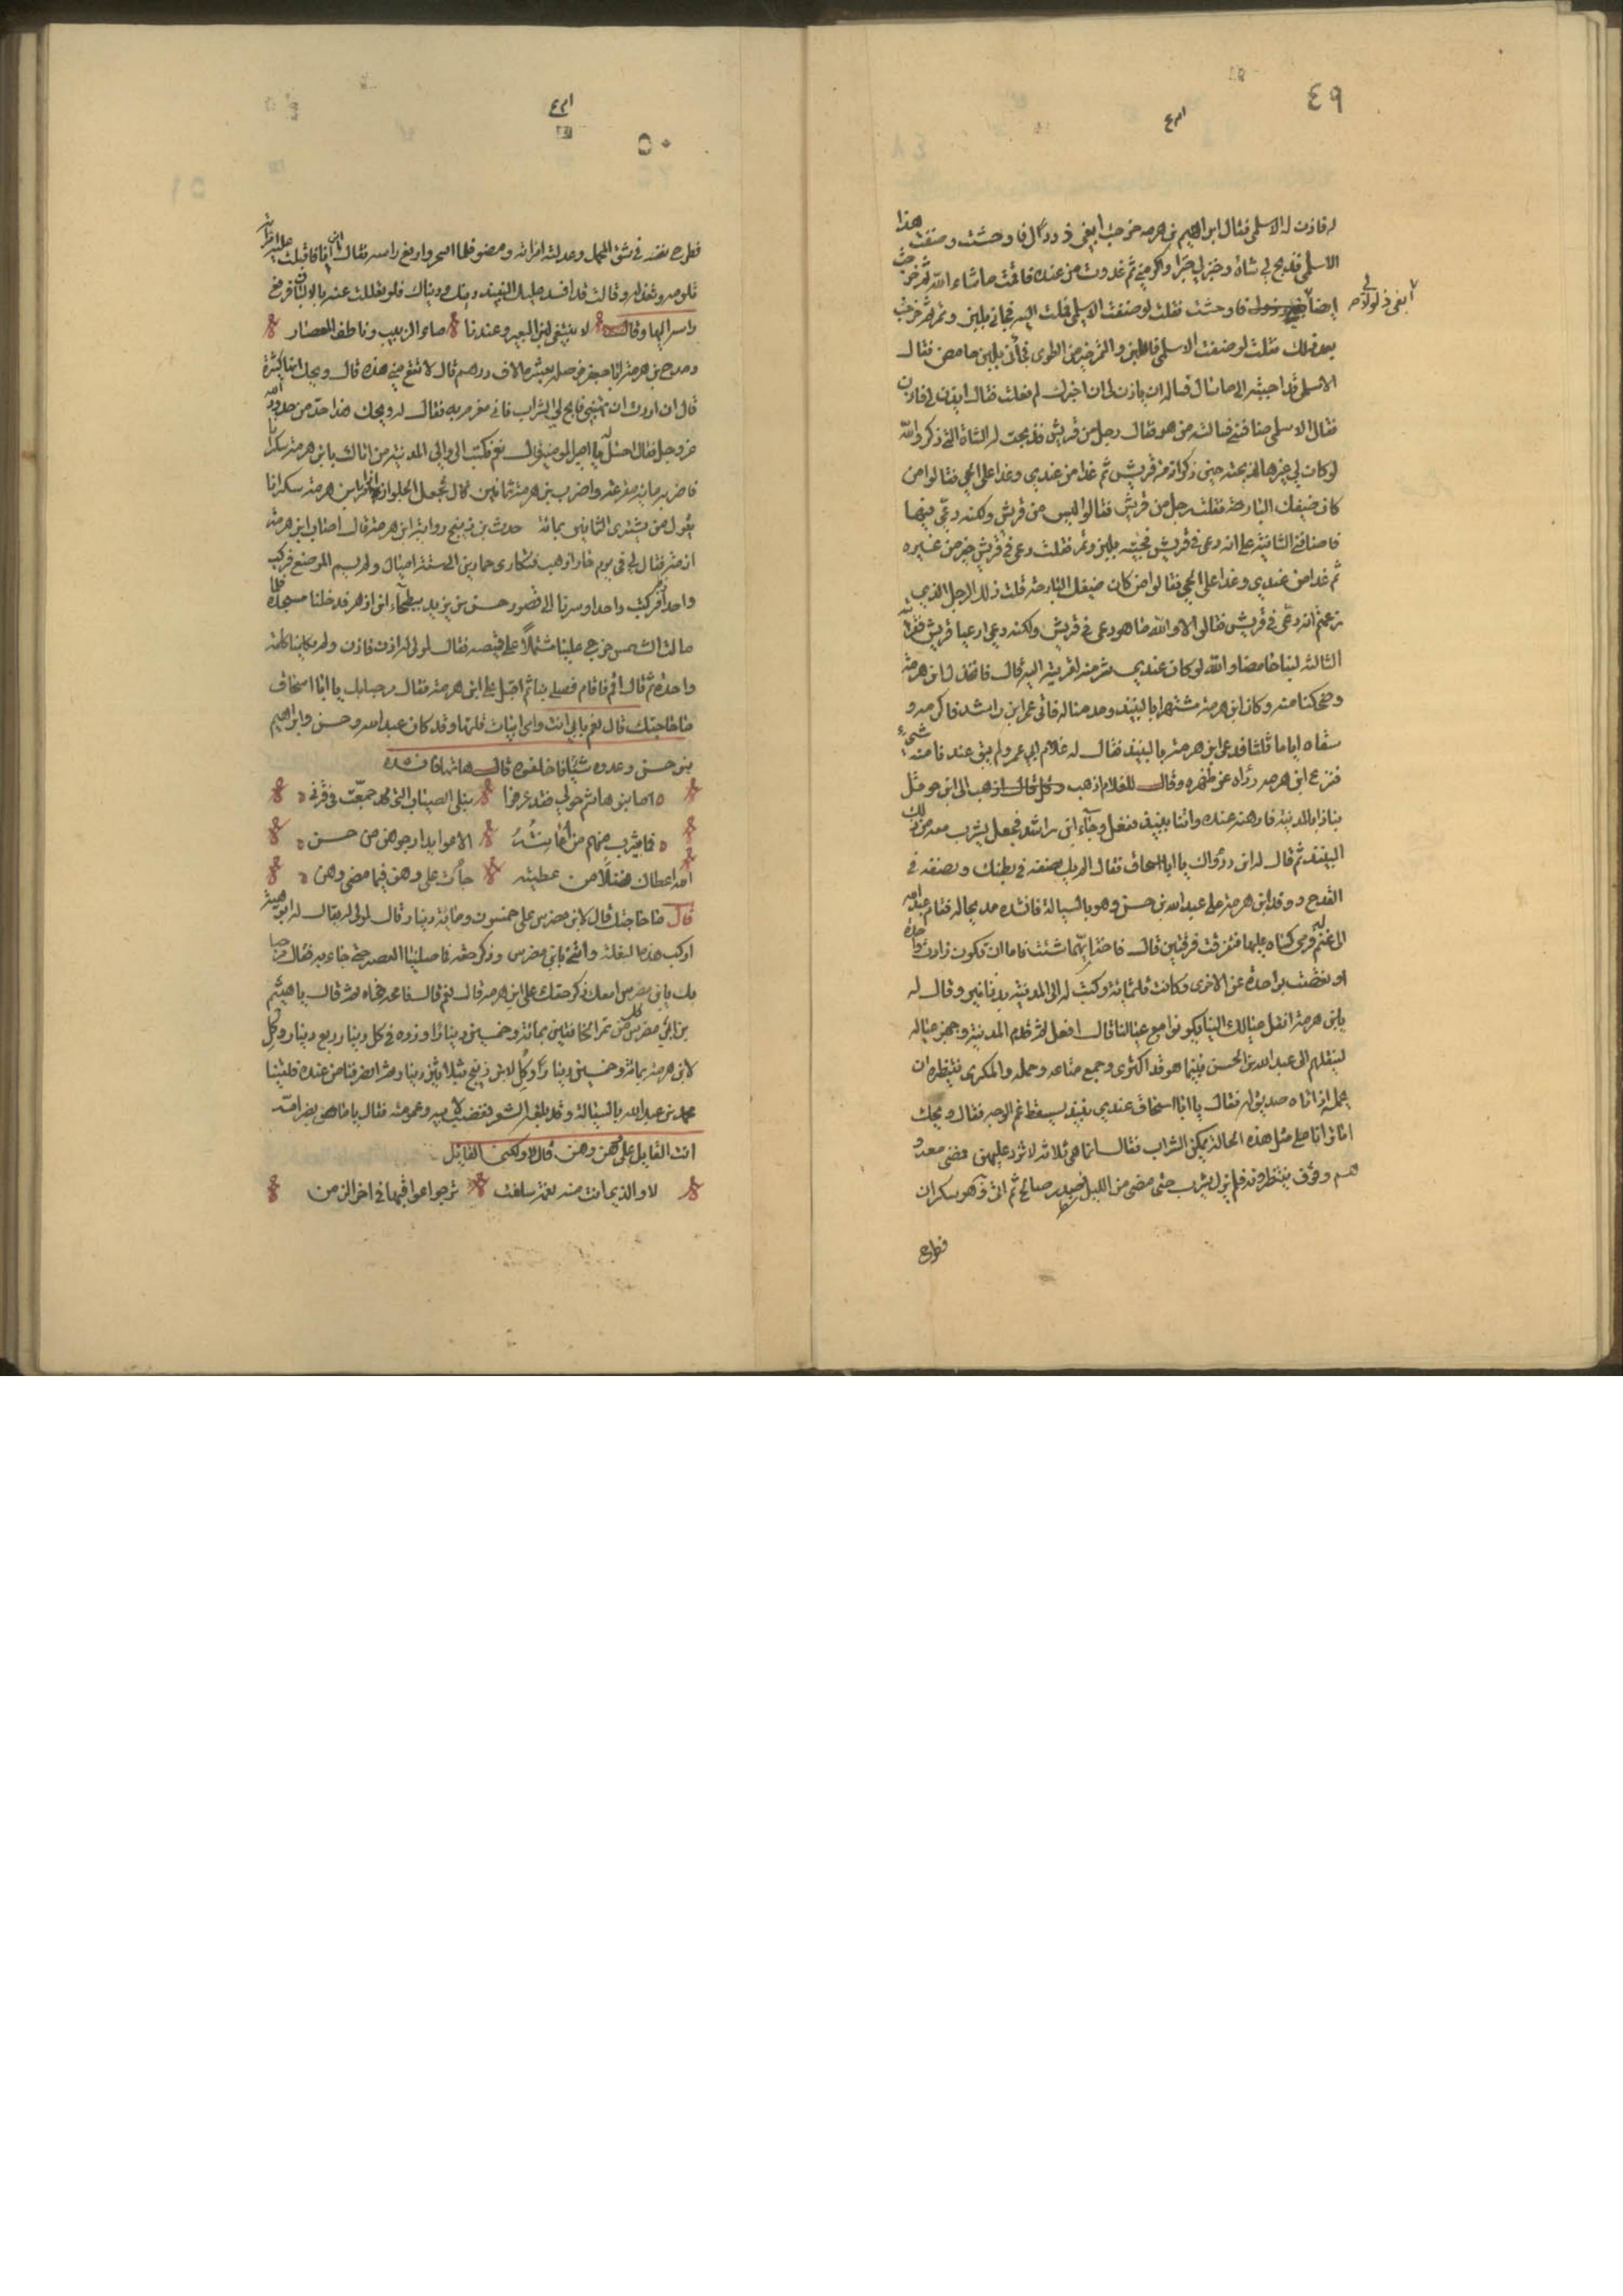 ٤٩
له فاذن له الاسلمي فقال ابراهيم بن هرمه خرجت ابغي ذودا لي فاوحشت وضفت هذا
الاسلمي فذبح لي شاة وخبز لي خبزا واكرمني ثم غدوت من عنده فاقمت ما شاء الله ثم خرجت
ايضا في فاوحشت فقلت لو ضفت الاسلمي فملت اليه فجاني بلبن وتمر ثم خرجت
ابغي ذودا لي
بعد ذلك فقلت لو ضفت الاسلمي فاللبن والتمر خير من الطوى فجأني بلبن حامض فقال
الاسلمي قد اجبته الى ما سأل فساله ان ياذن لي ان اخبرك لم فعلت فقال ايذن له فاذن
فقال الاسلمي ضافني فسالته من هو فقال رجل من قريش فذبحت له الشاة التي ذكر والله
لو كان لي غيرها لذبحته حين ذكر انه من قريش ثم غدا من عندي وغدا على الحي فقالوا من
كان ضيفك البارحة فقلت رجل من قريش فقالوا ليس من قريش ولكنه دعي فيها
فاضافني الثانية على انه دعي في قريش فجيته بلبن وتمر فقلت دعي في قريش خير من غيره
ثم غدا من عندي وغدا على الحي فقالوا من كان ضيفك البارحة قلت ذلك الرجل الذي
زعمتم انه دعي في قريش فقالوا لا والله ما هو دعي في قريش ولكنه دعي ادعيا قريش فقريته
الثالثة لبنا حامضا والله لو كان عندي شر منه لقريته اليه قال فانخذل ابن هرمة
وضحكنا منه وكان ابن هرمة مشتهرا بالنبيذ ومدمنا له فاتى عمر ابن راشد فاكرمه و
سقاه اياما ثلثا فدعى ابن هرمة بالنبيذ فقال له غلام ابي عمر ولم يبق عندنا منه شيء
فنزع ابن هرمه رداه عن ظهره وقال للغلام اذهب الى ابن حومثل
نباذ المدينة فارهنه عنده واتنا بنبيذ ففعل وجاء ابن راشد فجعل يشرب معه من ذلك
النبيذ ثم قال له اين رداؤك يا ابا اسحاق فقال له نصفه في بطنك ونصفه في
القدح ووفد ابن هرمة على عبد الله بن حسن وهو بالسيالة فانشده مديحا له فقام عبد الله
الى غنم له فرمى كساه عليها فتفرقت فرقتين قال فاختر ايهما شئت فاما ان تكون زادت واحدة
او نقصت بواحدة عن الاخرى وكانت ثلثمائة وكتب له الى المدينة بدنانير وقال له
يابن هرمة انقل عيالك الينا يكونوا مع عيالنا قال افعل ثم قدم المدينة وجهز عياله
لينقلهم الى عبد الله بن الحسن فبينما هو قد اكترى وجمع متاعه وحمله والمكري ينتظره ان
يحمل اذ اتاه صديق له فقال يا ابا اسحاق عندي نبيذ يسقط غم الوجه فقال ويحك
اما ترانا على مثل هذه الحالة يمكن الشراب فقال انما هي ثلاثة لا تزد عليهن فمضى معه و
هم وقوف ينتظرونه فلم يزل يشرب حتى مضى من الليل صدر صالح ثم اتى وهو سكران
فطرح
٥٠
فطرح نفسه في شق المحمل وعدلته امراته ومضو فلما اسحر وارفع راسه فقال اين انا فاقبلت عليه امراته
تلومه وتعذله وقالت قد افسد عليك النبيذ دينك ودنياك فلو تعللت عنه بالالبان فرفع
راسه اليها وقال لا تبتغي لبن البعير وعندنا ماء الزبيب وناطف المعصار
ومدح بن هرمة ابا جعفر فوصله بعشرة الاف درهم قال لا تنفع مني هذه قال ويحك انها كثيرة
قال ان اردت ان تهنيني فابح لي الشراب فاني مغرم به فقال له ويحك هذا حد من حدود الله
عز وجل فقال احتل لي يا امير المومنين قال نعم فكتب الى والي المدينة من اتاك بابن هرمة سكرانا
فاضربه مائة واضرب بن هرمة ثمانين قال فجعل الجلواز اذا مر بابن هرمة سكرانا
يقول من يشتري الثمانين بمائة حدث بن زبنج رواية ابن هرمة قال اصاب ابن هرمة
ازمة فقال لي في يوم حار اذهب فتكارى حمارين الى ستة اميال ولم يسم الموضع فركب
واحدا وركبت واحدا وسرنا الى قصور حسن بن يزيد ببطحاء ابن ازهر فدخلنا مسجده فلما
مالت الشمس خرج علينا مشتملا على قميصه فقال لمولى له اذن فاذن ولم يكلمنا كلمة
واحدة ثم قال اقم فاقام فصلى بنا ثم اقبل على ابن هرمة فقال مرحبا بك يا ابا اسحاق
ما حاجتك قال نعم بابي انت وامي ابيات قلتها وقد كان عبد الله وحسن وابراهيم
بنو حسن وعدوه شيئا فاخلفوه قال هاتها فانشده
اما بنو هاشم حولي فقد قرعوا نبلى الصياب التي قد جمعت في قرني
فما بيثرب منهم من اعاتبه الا عوايد ارجوهن من حسن
الله اعطاك فضلا من عطيته على هن وهن فيما مضى وهن
قال ما حاجتك قال لابن مضرس علي خمسون ومائة دينار قال لمولى له يقال له ابو هيثم
اركب هذه البغلة واتني بابن مضرس وذكر حقه فما صلينا العصر حتى جاء به فقال مرحبا
بك يابن مضرس امعك ذكر حقك على ابن هرمة قال نعم قال فامحه فمحاه ثم قال يا هيثم
بع ابن مضرس من تمر الخانقين بمائة وخمسين دينارا وزده في كل دينار ربع دينار وكل
لابن هرمة بمائة وخمسين دينارا وكل لابن زبنج بثلاثين دينارا ثم انصرفنا من عنده فلقينا
محمد بن عبد الله بالسيالة وقد بلغه الشعر فغضب لابيه وعمومته فقال يا ماص بظر امه
انت القايل على هن وهن قال لا ولكني القايل
لا والذي انت منه نعمة سلفت ترجوا عواقبها في اخر الزمن